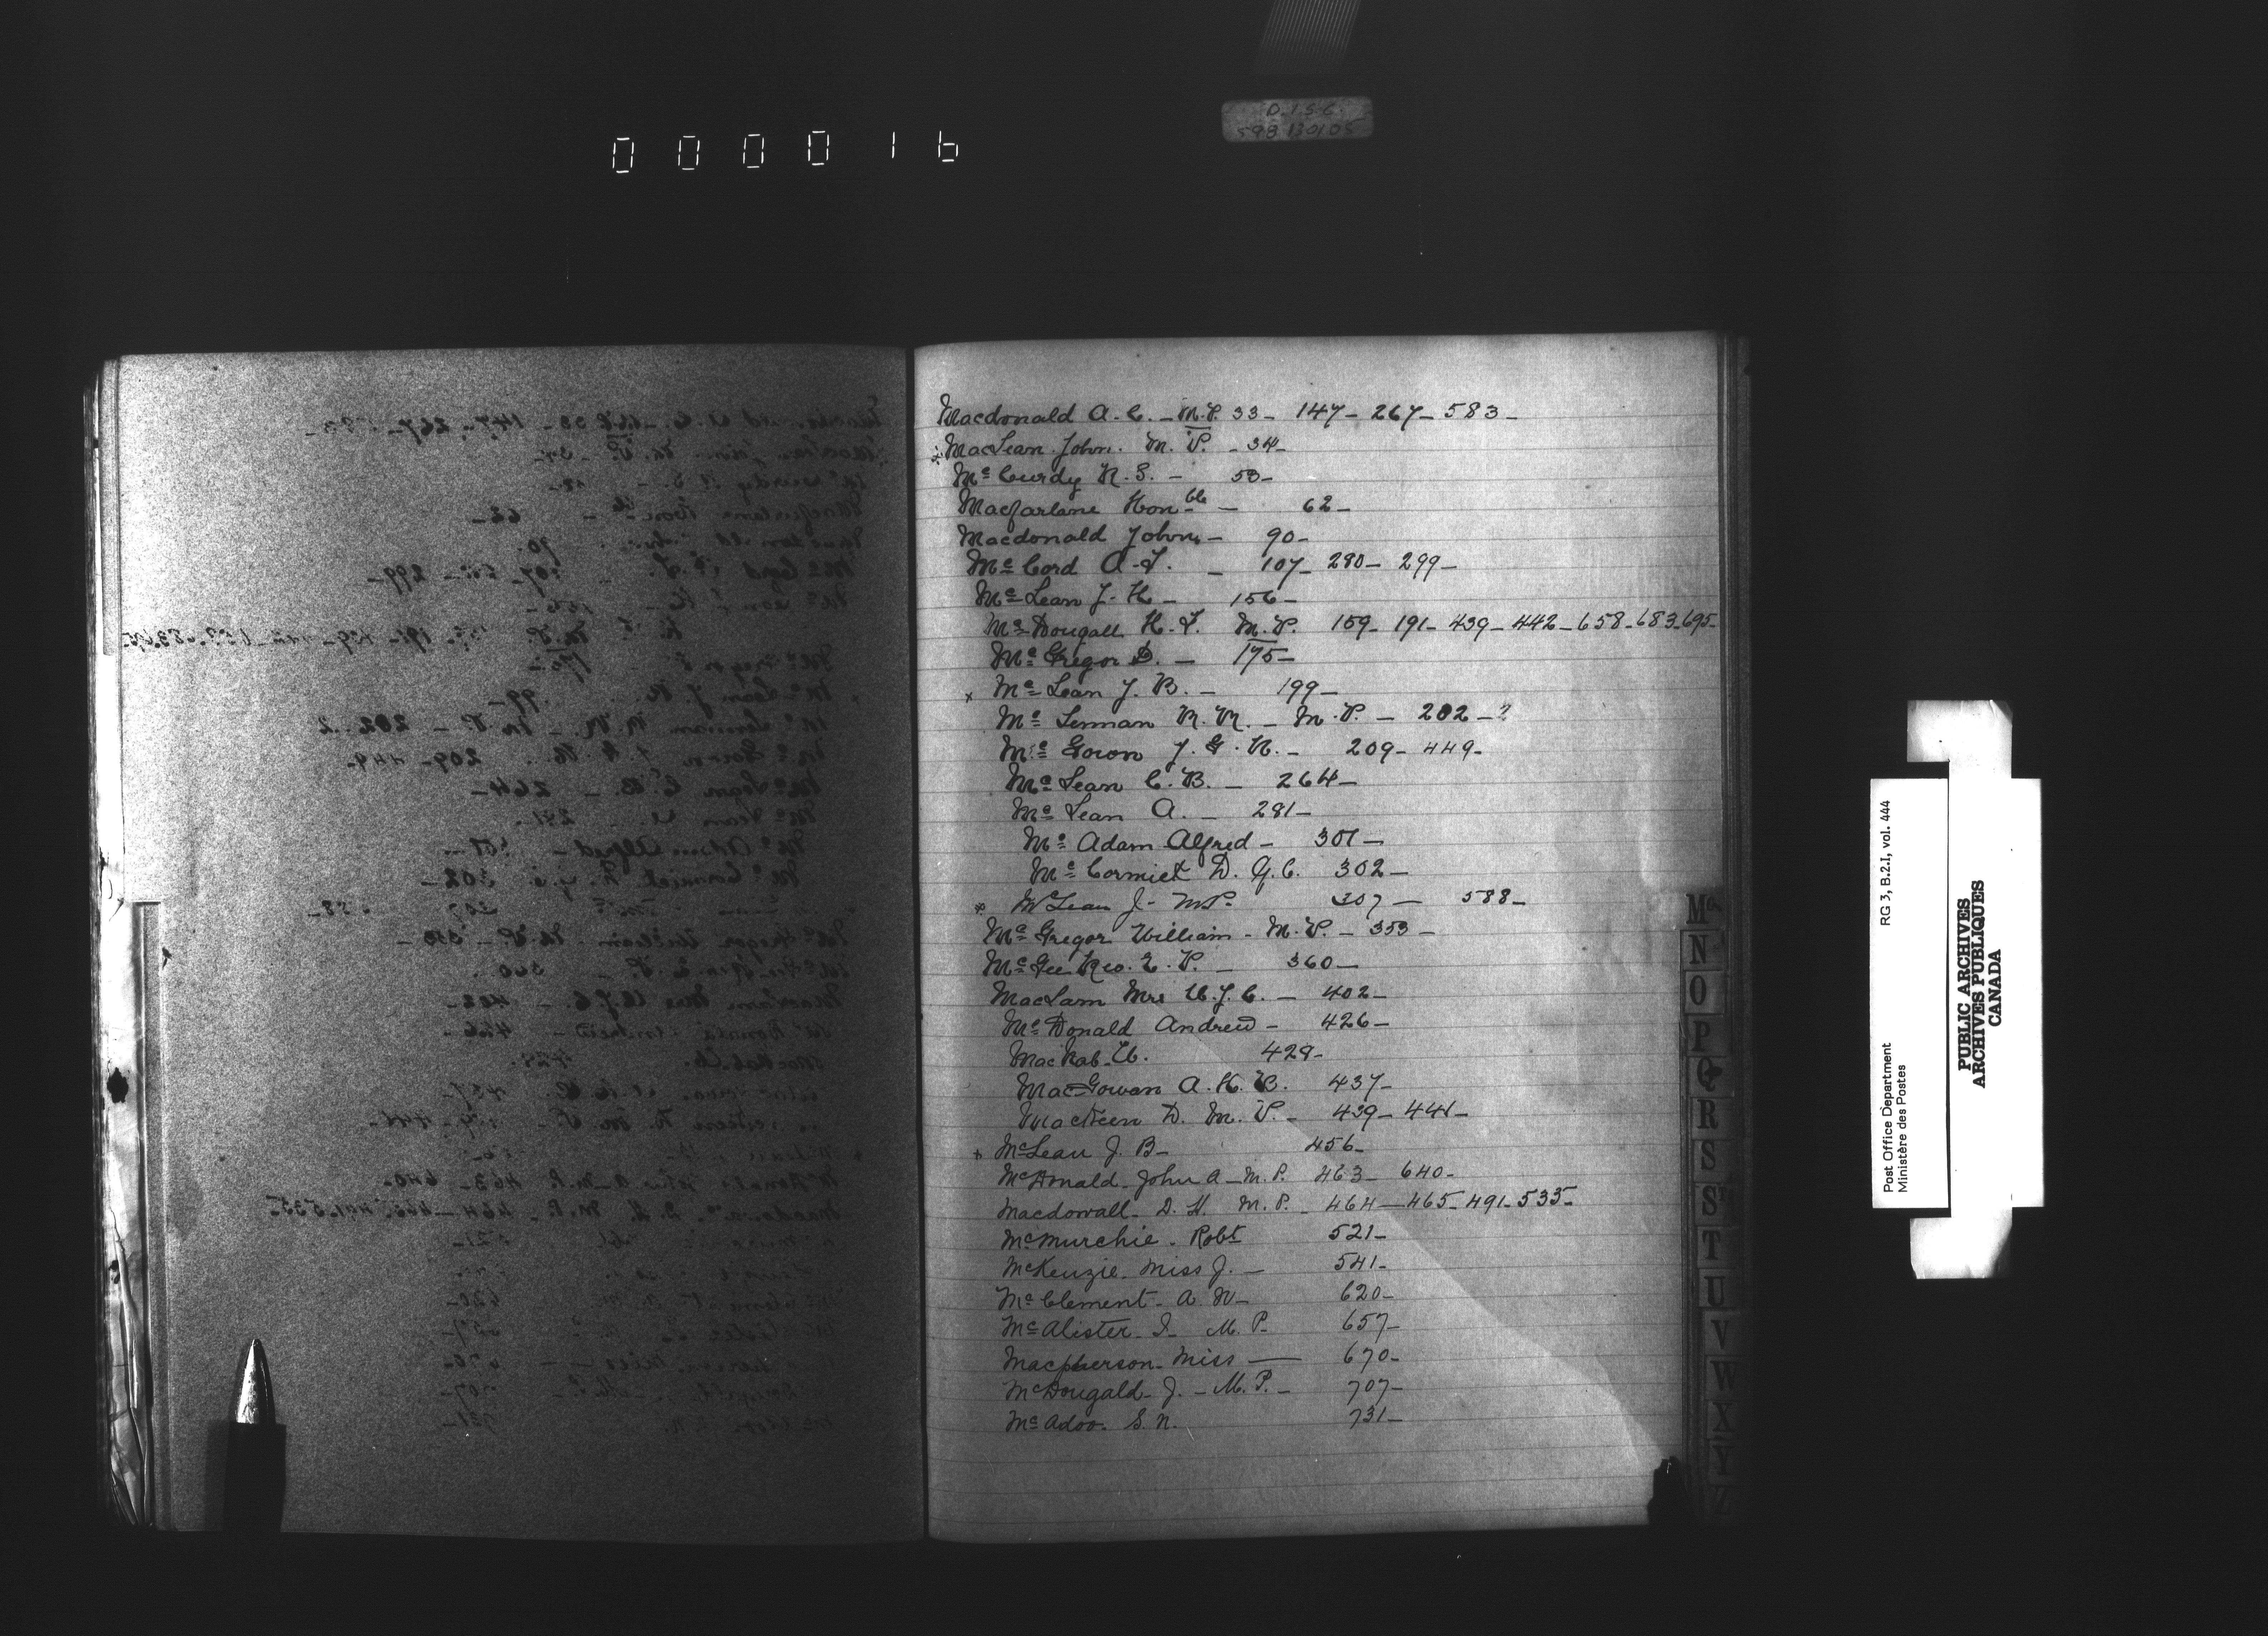 D.I.S.C.
598-130105
000016
Macdonald A. C. - M.P. 33 - 147 - 267 - 583 -
MacLean John. M. P. - 34 -
Mc Curdy N. S. - 53 -
Macfarlane Honble - 62 -
Macdonald John - 90 -
Mc Cord A. T. - 107 - 280 - 299 -
Mc Lean J. H. - 156 -
Mc Dougall H. F. M.P. 159 - 191 - 439 - 442 - 658 - 683 - 695 -
Mc Gregor D. - 175 -
x Mc Lean J. B. - 199 -
Mc Lennan R. R. - M.P. - 202 - 2
Mc Gowon J. G. N. - 209 - 449 -
Mc Lean C. B. - 264 -
Mc Lean A. - 281 -
Mc Adam Alfred - 301 -
Mc Cormick D. Q.C. 302 -
* McLean J - M.P. 307 - 588 -
Mc Gregor William - M.P. - 353 -
Mc Gee Rev. E. P. - 360 -
MacLam Mrs W. J. C. - 402 -
Mc Donald Andrew - 426 -
MacNab - 429 -
MacGowan A. H. B. 437 -
MacKeen D. M. P. - 439 - 441 -
x McLean J. B - 456 -
McDonald - John A - M.P. 463 - 640 -
Macdowall - D. H. M.P. - 464 - 465 - 491 - 535 -
McMurchie. Robt 521 -
McKenzie - Miss J. - 541 -
Mc Clement - A. W - 620 -
Mc Alister - J - M. P - 657 -
Macpherson - Miss - 670 -
McDougald - J. - M.P. - 707 -
Mc Adoo. S. N. 731 -
Mc
N
O
P
Q
R
S
ST
T
U
V
W
X
Y
Z
Post Office Department RG 3, B.2.I, vol. 444
Ministère des Postes
PUBLIC ARCHIVES
ARCHIVES PUBLIQUES
CANADA